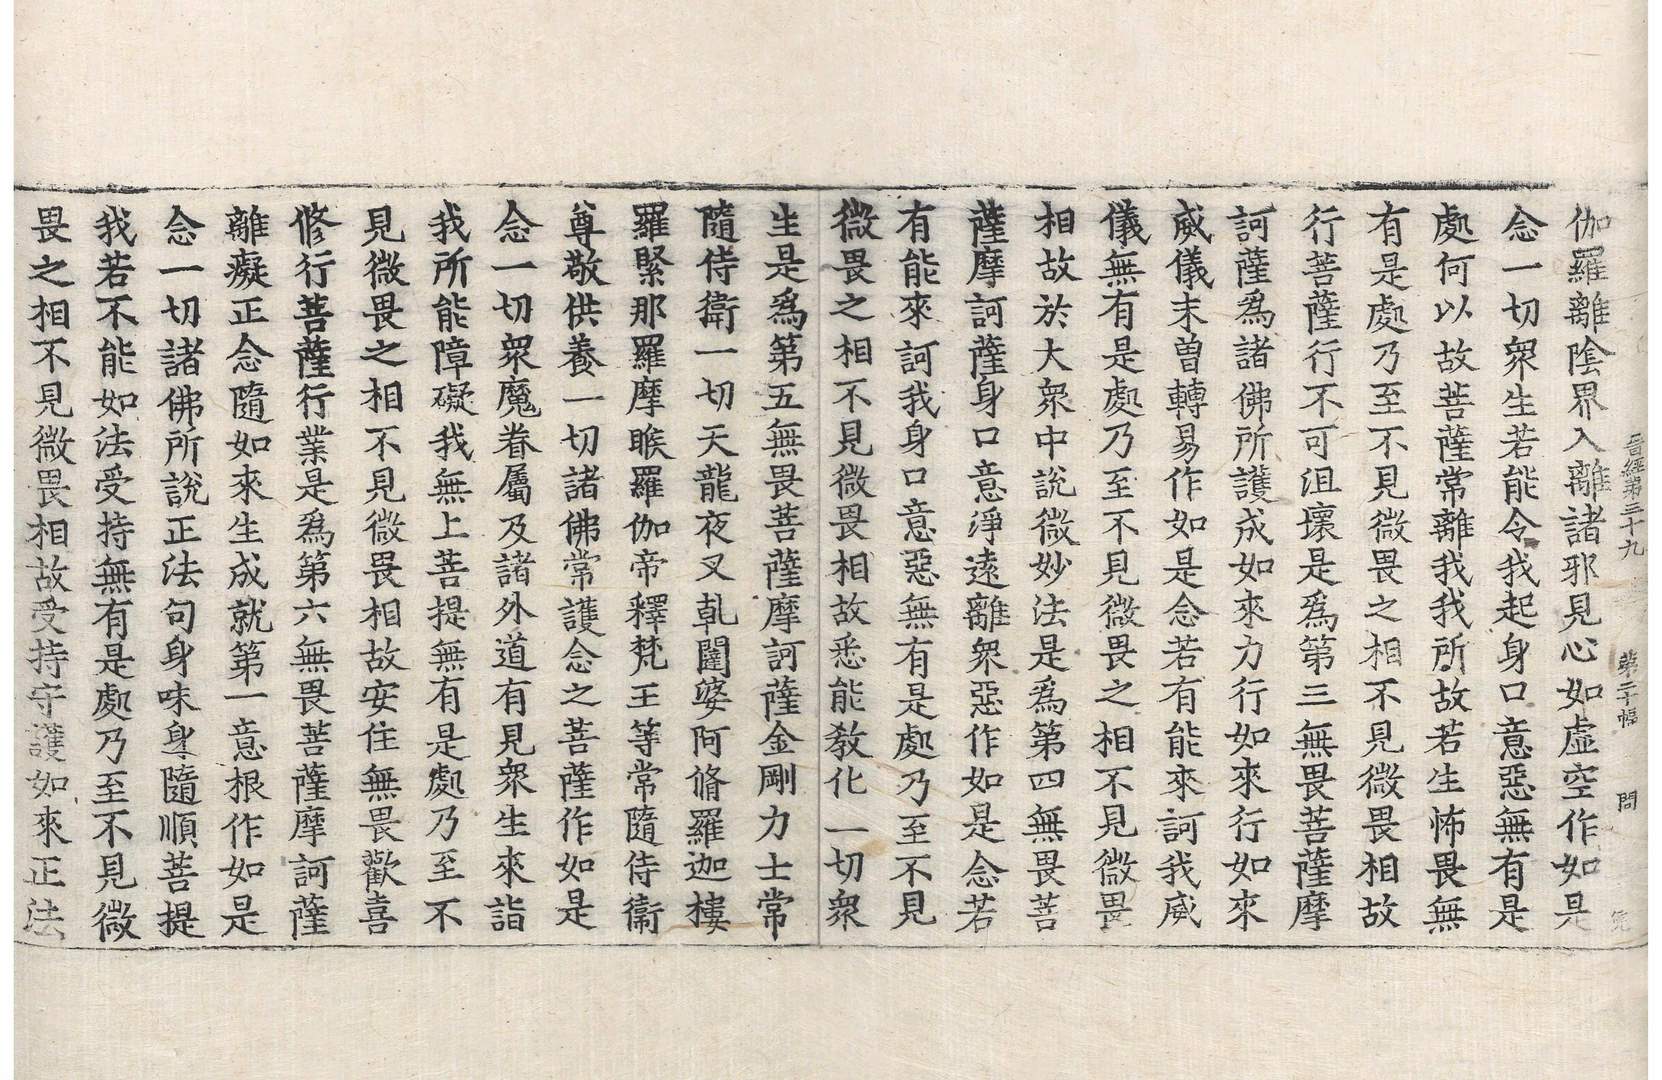 晉經第三十九 第二十幅 問
伽羅離陰界入離諸邪見心如虛空作如是
念一切衆生若能令我起身口意惡無有是
處何以故菩薩常離我我所故若生怖畏無
有是處乃至不見微畏之相不見微畏相故
行菩薩行不可沮壞是爲第三無畏菩薩摩
訶薩爲諸佛所護成如來力行如來行如來
威儀末曾轉易作如是念若有能來訶我威
儀無有是處乃至不見微畏之相不見微畏
相故於大衆中說微妙法是爲第四無畏菩
薩摩訶薩身口意淨遠離衆惡作如是念若
有能來訶我身口意惡無有是處乃至不見
微畏之相不見微畏相故悉能敎化一切衆
生是爲第五無畏菩薩摩訶薩金剛力士常
隨侍衛一切天龍夜叉乹闥婆阿脩羅迦樓
羅緊那羅摩睺羅伽帝釋梵王等常隨侍衞
尊敬供養一切諸佛常護念之菩薩作如是
念一切衆魔眷屬及諸外道有見衆生來詣
我所能障礙我無上菩提無有是處乃至不
見微畏之相不見微畏相故安住無畏歡喜
修行菩薩行業是爲第六無畏菩薩摩訶薩
離癡正念隨如來生成就第一意根作如是
念一切諸佛所說正法句身味身隨順菩提
我若不能如法受持無有是處乃至不見微
畏之相不見微畏相故受持守護如來正法